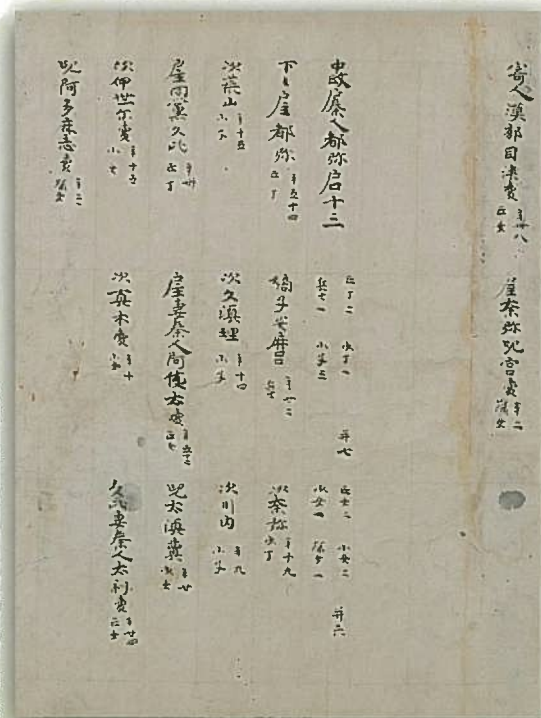 寄人漢部目津賣 年卌八 正女
屋奈弥児宮賣 年二 緑女
中政戸秦人都弥戸口十三
正丁二 少丁一
兵士一 小子三
并七
正女二 小女二
少女一 緑女一
并六
下々戸主都弥 年五十四 正丁
嫡子安麻呂 年廿二 兵士
次奈弥 年十九 少丁
次葉山 年十五 小子
次久漢理 年十四 小子
次川内 年九 小子
久比 正丁
戸主妻秦人 賣 正女
児太漢賣 年廿 少女
次伊世尓賣 年十五 小女
次真木賣 年十 小女
久比妻秦人太利賣 年廿四 正女
児阿多麻志賣 年二 緑女